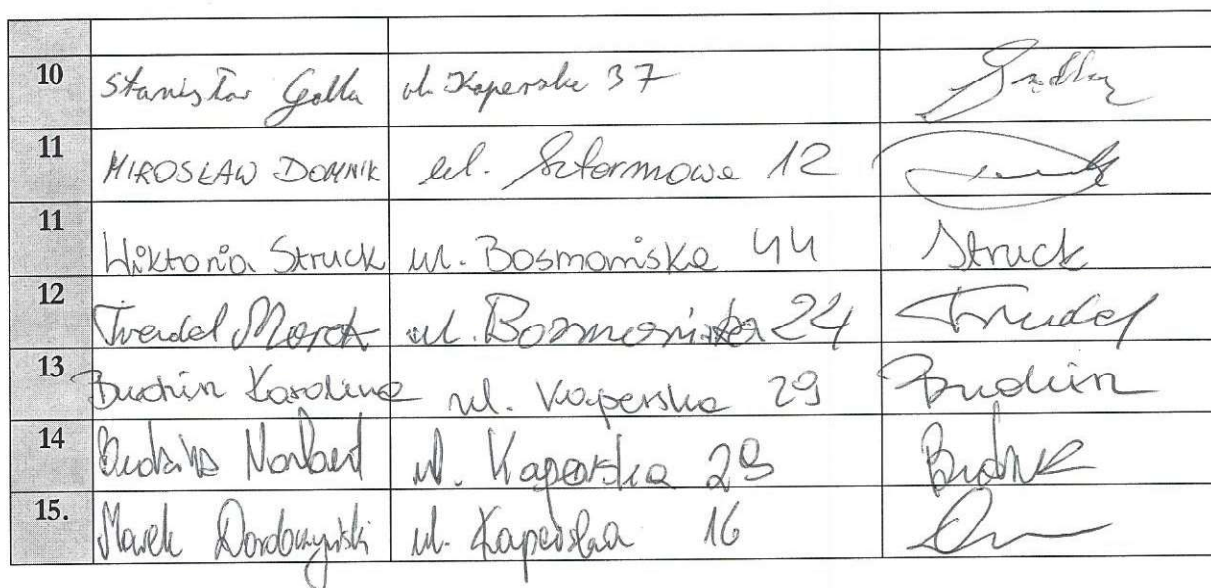 10 Stanisław Galla ul. Kaperska 37
11 MIROSŁAW DOMNIK ul. Sztormowa 12
11 Wiktoria Struck ul. Bosmańska 44 Struck
12 Trendel Marek ul. Bosmańska 24 Trendel
13 Budzin Karolina ul. Kaperska 29 Budzin
14 Norbert ul. Kaperska 29
15. Marek ul. Kaperska 16